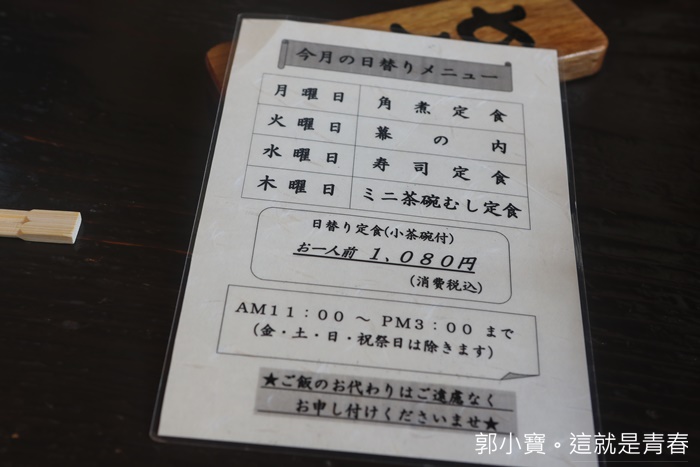 今月の日替りメニュー
月曜日 角煮定食
火曜日 幕の内
水曜日 寿司定食
木曜日 ミニ茶碗むし定食
日替り定食(小茶碗付)
お一人前 1,080円
(消費税込)
AM11:00 ~ PM3:00 まで
(金・土・日・祝祭日は除きます)
★ご飯のお代わりはご遠慮なく
お申し付けくださいませ★
郭小寶。這就是青春